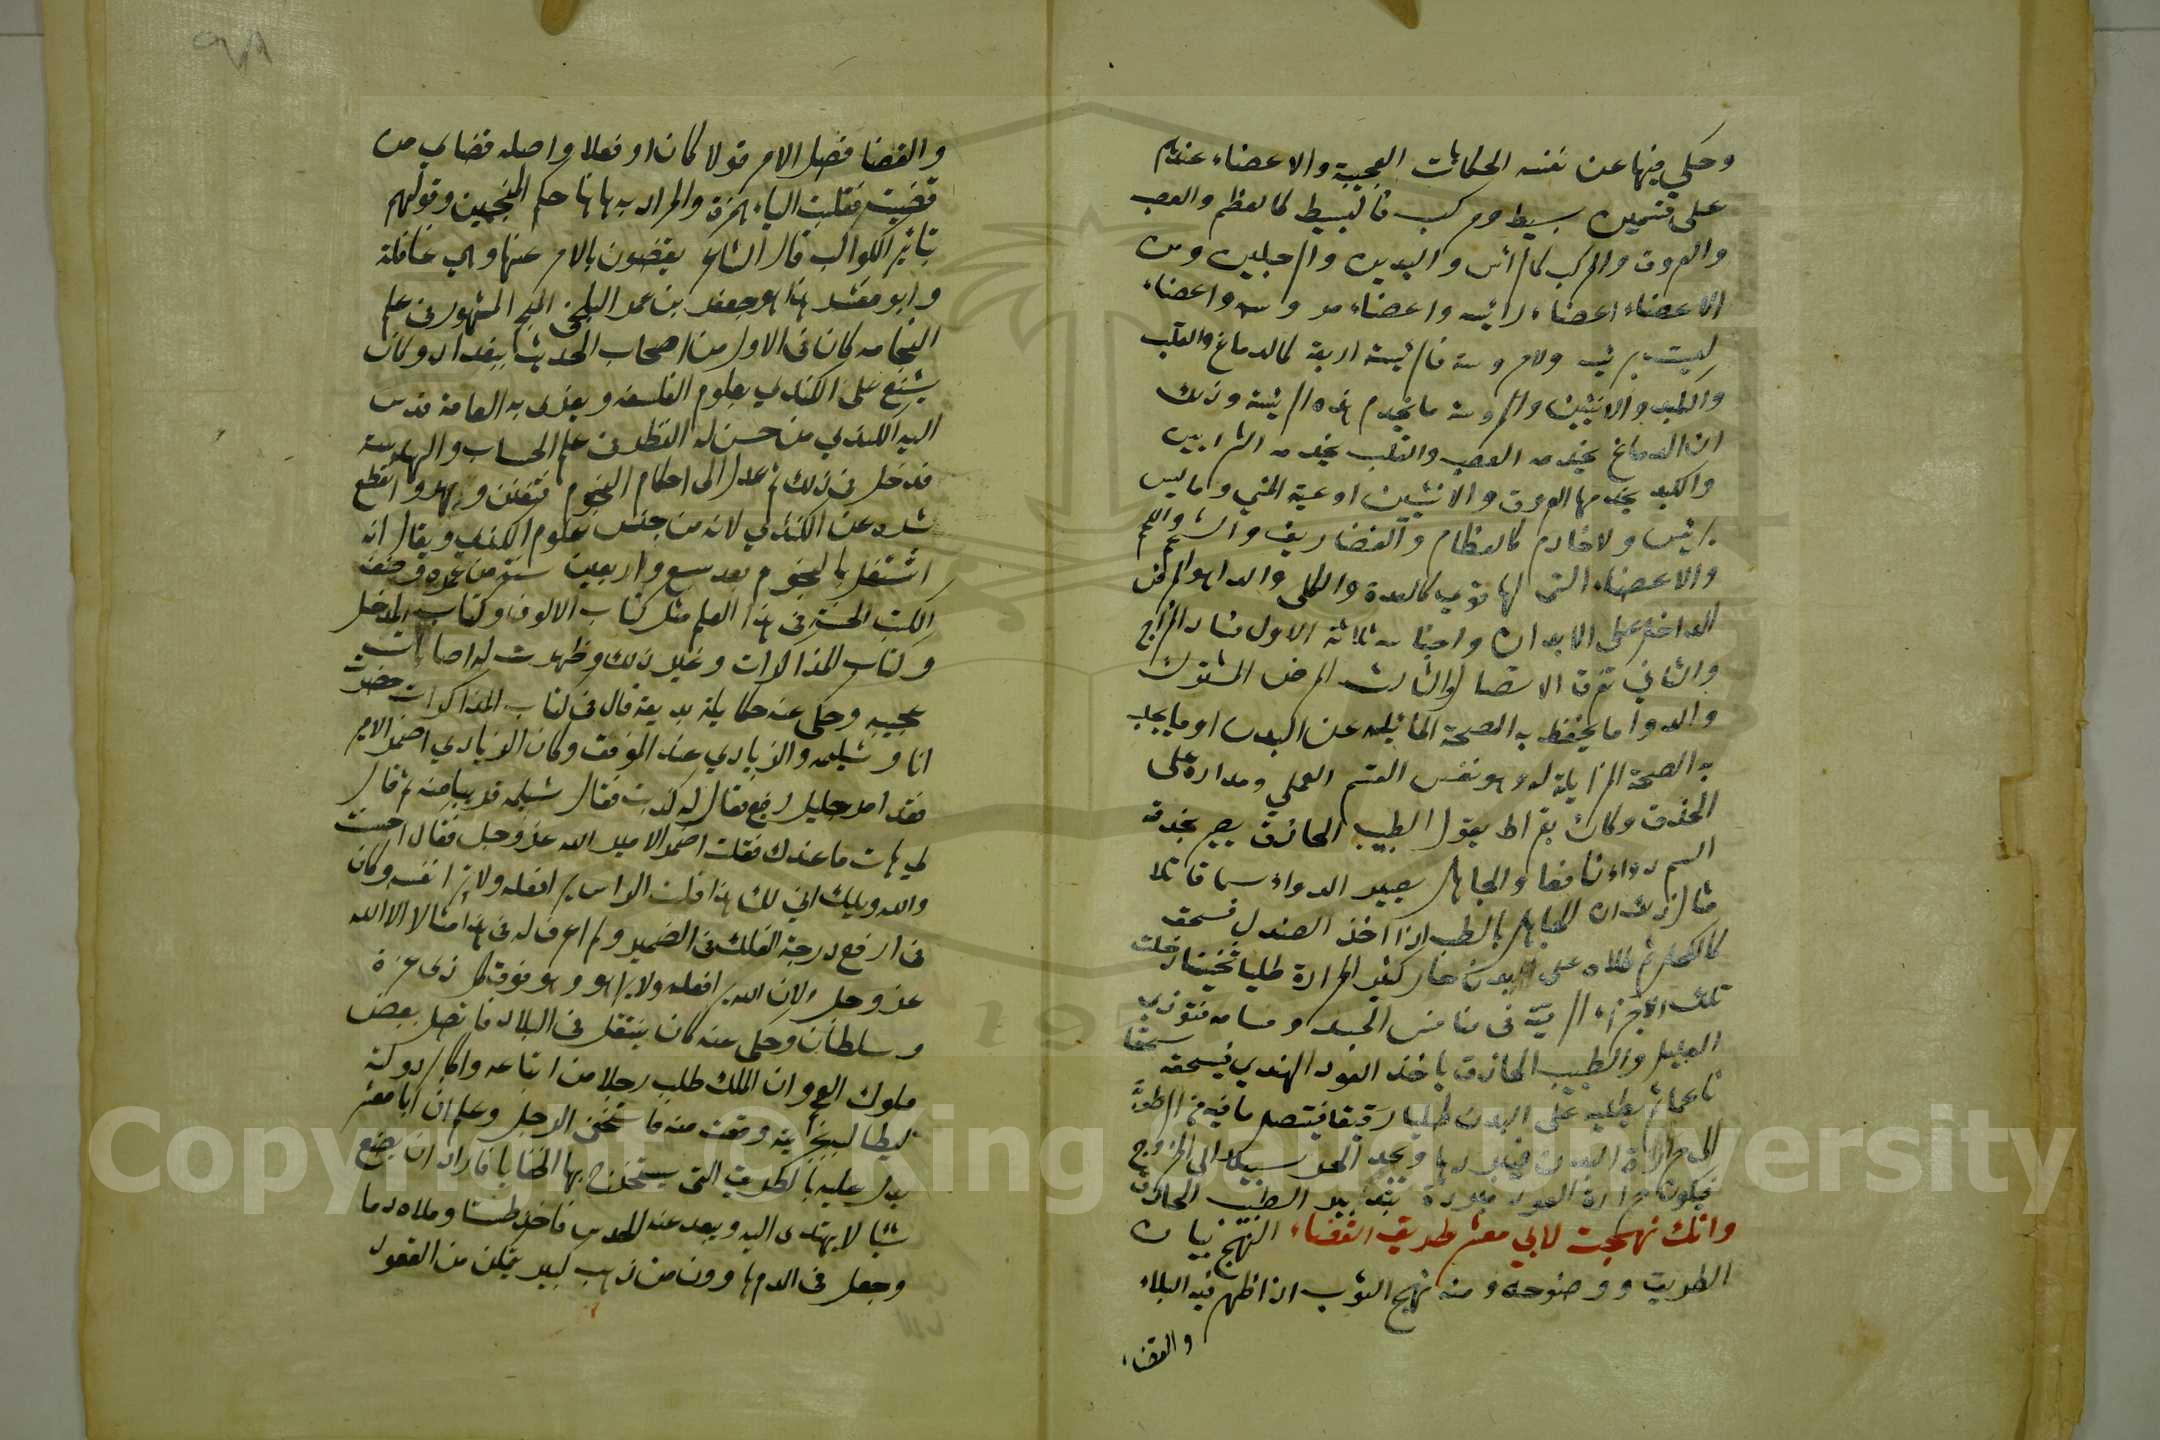 وحكي فيها عن نفسه الحكايات العجيبة والاعضاء عندهم
على قسمين بسيط ومركب فالبسيط كالعظم والعصب
والعروق والمركب كالرأس واليدين والرجلين ومن
الاعضاء اعضاء رائيسه واعضاء مروسه واعضاء
ليست برئيسه ولامروسة فالرئيسة اربعة كالدماغ والقلب
والكبد والانثيين والمروسة ما يخدم هذه الرئيسة وذلك
ان الدماغ يخدمه العصب والقلب يخدمه الشرايين
والكبد يخدمها العروق والانثيين اوعية المني وما ليس
برئيس ولا خادم كالعظام والغضاريف والشحم واللحم
والاعضاء التى لها قوي كالمعدة والكلى والداهوالمرض
الداخل على الابدان واجناسه ثلاثة الاول فساد المزاج
والثاني تفرق الاتصال والثالث المرض المشترك
والدواما يحفظ به الصحة الماثيله عن البدن اوما يجلب
به الصحة المزايلة له وهو نفس القسم العملي ومداره على
الحذق وكان بقراط يقول الطبيب الحاذق يصير بحذقه
السم دواء نافعا والجاهل يصير الدواء سما قاتلا
مثال ذلك ان الجاهل بالطب اذا اخذ الصندل فسحقه
كالكحل ثم طلاه على البدن حار كثير الحرارة طليا ثخينا دخلت
تلك الاجزاء الرقيقة فى منافس الجسد ومسامه فتوذي
العليل والطبيب الحاذق ياخذ العود الهندي فيسحقه سحقا
ناعما ثم يطليه على البدن طليا رقيقا فيتصل ما فيه من الرطوبة
الى حرارة البدن فيبردها ويجد الحر سبيلا الى الخروج
فيكون حرارة العود مبردة بتدبير الطبيب الحاذق
وانك نهجت لابي معشر طريق القضاء النهج بيان
الطريق ووضوحه ومنه نهج الثوب اذا ظهر فيه البلاء
والقضاء
والقضا فصل الامر قولا كان او فعلا واصله قضاي من
قضيت فقلبت الياء همزة والمراد به هاهنا حكم المنجمين وقولهم
بتاثير الكواكب قال الشاعر يقضون بالامر عنها وهي غافلة
وابو معشر هذا هو جعفر بن محمد البلخي المنجم المشهور فى علم
النجامه كان فى الاول من اصحاب الحديث ببغداد وكان
يشنع على الكندي بعلوم الفلسفه ويغرى به العامة فدس
اليه الكندي من حسن له النظر فى علم الحساب والهندسة
فدخل فى ذلك ثم عدل الى احكام النجوم فتفنن وبهر وانقطع
شره عن الكندي لانه من جنس علوم الكندي ويقال انه
اشتغل بالنجوم بعد سبع واربعين سنة من عمره وصنف
الكتب الحسنة فى هذا العلم مثل كتاب الالوف وكتاب المدخل
وكتاب المذاكرات وغير ذلك وظهرت له اصابات
عجيبه وحكى عنه حكاية بديعة قال فى كتاب المذاكرات حضرت
انا وشيلمه والزيادي عند الموفق وكان الزيادي اضمر الامير
فقد امر جليل رفيع فقال له كذبت فقال شيلمه قريبا منه ثم قال
لي هات ما عندك فقلت اضمر الامير الله عز وجل فقال احسنت
والله ويلك انى لك هذا قلت الراس يرا فعله ولا يرا نفسه وكان
فى ارفع درجة الفلك فى الضمير ولم اعرف له فى هذا مثالا الا الله
عز وجل لان الله يرا فعله ولا يرا هو وهو فوق كل ذى عزة
وسلطان وحكى عنه كان ينتقل فى البلاد فاتصل ببعض
ملوك العجم وان الملك طلب رجلا من اتباعه واكابر دولته
ليطالبه بجناية وقعت منه فاستخفى الرجل وعلم ان ابا معشر
يدل عليه بالطريق التى يستخرج بها الخفايا فاراد ان يصنع
شيئا لا يهتدى اليه ويبعد عنه الحدس فاخذ طستا وملاه دما
وجعل فى الدم هاوون من ذهب كبير يتمكن من القعود